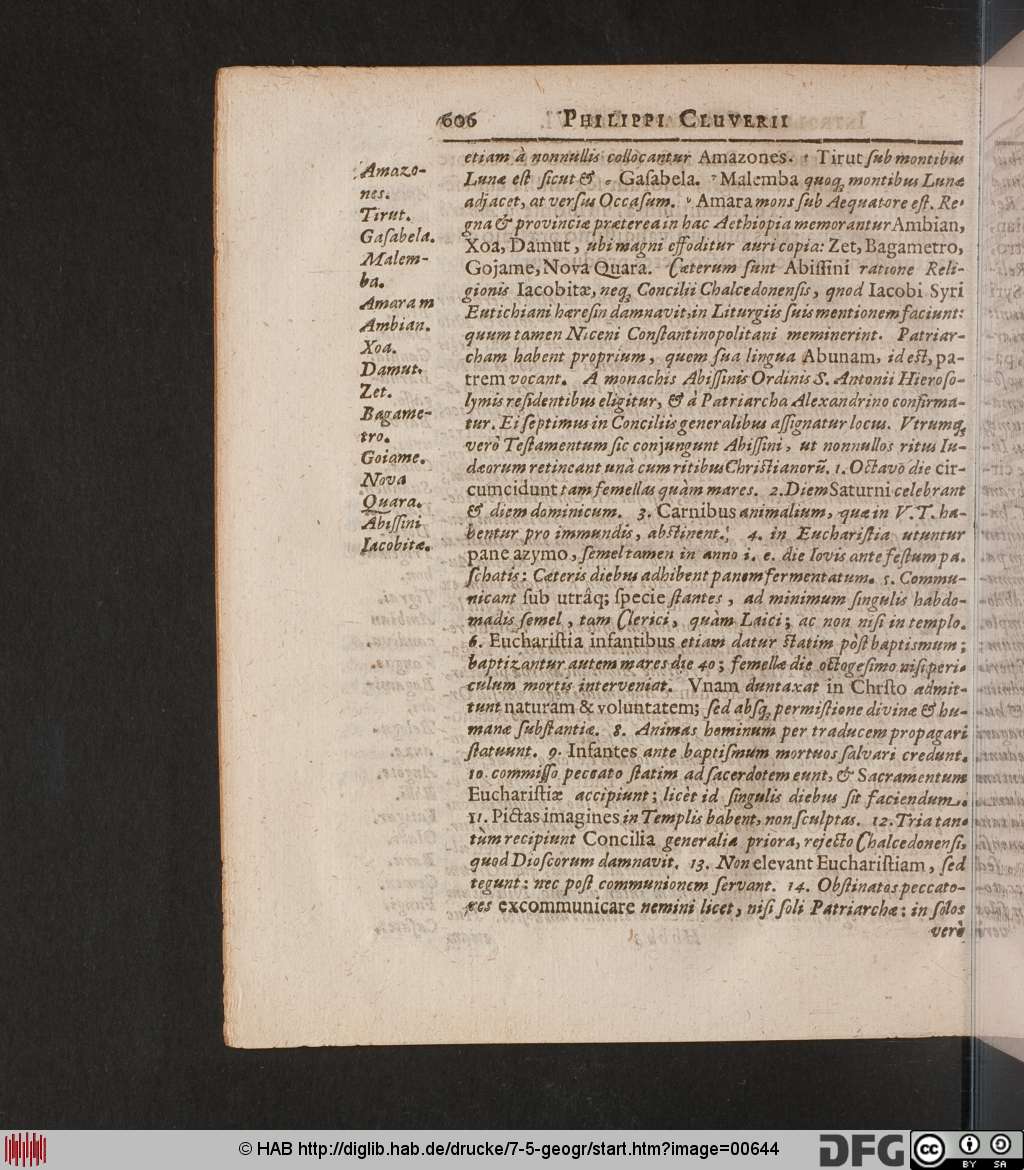 606 PHILIPPI CLUVERII
etiam à nonnullis collocantur Amazones. Tirut ſub montibus
Lunæ eſt ſicut & Gaſabela. Malemba quoq; montibus Lunæ
adjacet, at verſus Occaſum. Amara mons ſub Aequatore eſt. Re-
gna & provinciæ præterea in hac Aethiopia memorantur Ambian,
Xoa, Damut, ubi magni effoditur auri copia: Zet, Bagametro,
Gojame, Nova Quara. Cæterum ſunt Abiſſini ratione Reli-
gionis Iacobitæ, neq; Concilii Chalcedonenſis, quod Iacobi Syri
Eutichiani hæreſin damnavit, in Liturgiis ſuis mentionem faciunt:
quum tamen Niceni Conſtantinopolitani meminerint. Patriar-
cham habent proprium, quem ſua lingua Abunam, id eſt, pa-
trem vocant. A monachis Abiſſinis Ordinis S. Antonii Hieroſo-
lymis reſidentibus eligitur, & à Patriarcha Alexandrino confirma-
tur. Ei ſeptimus in Conciliis generalibus aſſignatur locus. Vtrumq;
verò Teſtamentum ſic conjungunt Abiſſini, ut nonnullos ritus Iu-
dæorum retineant unà cum ritibus Chriſtianorũ. 1. Octavo die cir-
cumcidunt tam femellas quàm mares. 2. Diem Saturni celebrant
& diem dominicum. 3. Carnibus animalium, quæ in V. T. ha-
bentur pro immundis, abſtinent. 4. in Euchariſtia utuntur
pane azymo, ſemel tamen in anno i. e. die Iovis ante feſtum pa-
ſchatis: Cæteris diebus adhibent panem fermentatum. 5. Commu-
nicant ſub utrâq; ſpecie ſtantes, ad minimum ſingulis habdo-
madis ſemel, tam Clerici, quàm Laici; ac non niſi in templo.
6. Euchariſtia infantibus etiam datur ſtatim pòſt baptismum;
baptizantur autem mares die 40; femellæ die octogeſimo niſi peri-
culum mortis interveniat. Vnam duntaxat in Chrſto admit-
tunt naturam & voluntatem; ſed abſq; permiſtione divinæ & hu-
manæ ſubſtantiæ. 8. Animas hominum per traducem propagari
ſtatuunt. 9. Infantes ante baptiſmum mortuos ſalvari credunt.
10. commiſſo peccato ſtatim ad ſacerdotem eunt, & Sacramentum
Euchariſtiæ accipiunt; licèt id ſingulis diebus ſit faciendum.
11. Pictas imagines in Templis habent, non ſculptas. 12. Tria tan-
tùm recipiunt Concilia generalia priora, rejecto Chalcedonenſi,
quod Dioſcorum damnavit. 13. Non elevant Euchariſtiam, ſed
tegunt: nec poſt communionem ſervant. 14. Obſtinatos peccato-
res excommunicare nemini licet, niſi ſoli Patriarchæ: in ſolos
verò
Amazo-
nes.
Tirut.
Gaſabela.
Malem-
ba.
Amara m
Ambian.
Xoa.
Damut.
Zet.
Bagame-
tro.
Goiame.
Nova
Quara.
Abiſſini
Iacobitæ.
© HAB http://diglib.hab.de/drucke/7-5-geogr/start.htm?image=00644
DFG
cc
BY SA